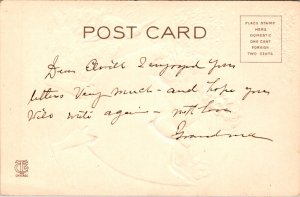 POST CARD
PLACE STAMP
HERE
DOMESTIC
ONE CENT
FOREIGN
TWO CENTS
Dear I enjoyed your
letters Very much - and hope you
will write again - with love
Grandma